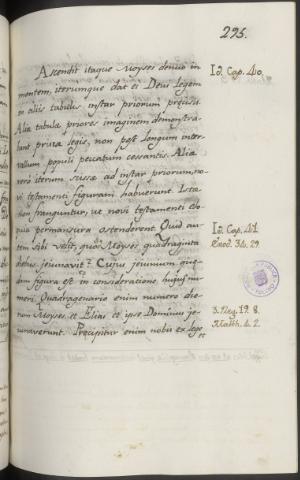 295.
Ascendit itaque Moyses denuo in
montem, iterumque dat ei Deus legem
in aliis tabulis instar priorum præcisis.
Aliæ tabulæ priores imaginem demonstra-
bant priscæ legis, non post longum inter-
vallum populi peccatum cessantis. Aliæ
vero iterum sussæ ad instar priorum, no-
vi testamenti figuram habuerunt. Istæ
non franguntur, ut novi testamenti elo-
quia permansura ostenderent. Quid au-
tem sibi velit, quod Moyses quadraginta
diebus jejunavit? Cujus jejunium, quæ-
dam figura est in consideratione hujus nu-
meri. Quadragenario enim numero die-
rum Moyses, et Elias et ipse Dominus je-
junaverunt. Præcipitur enim nobis ex lege
et
Id. Cap. 40.
Id. Cap. 41.
Exod. 34. 29.
3. Reg. 19. 8.
Matth. 4. 2.